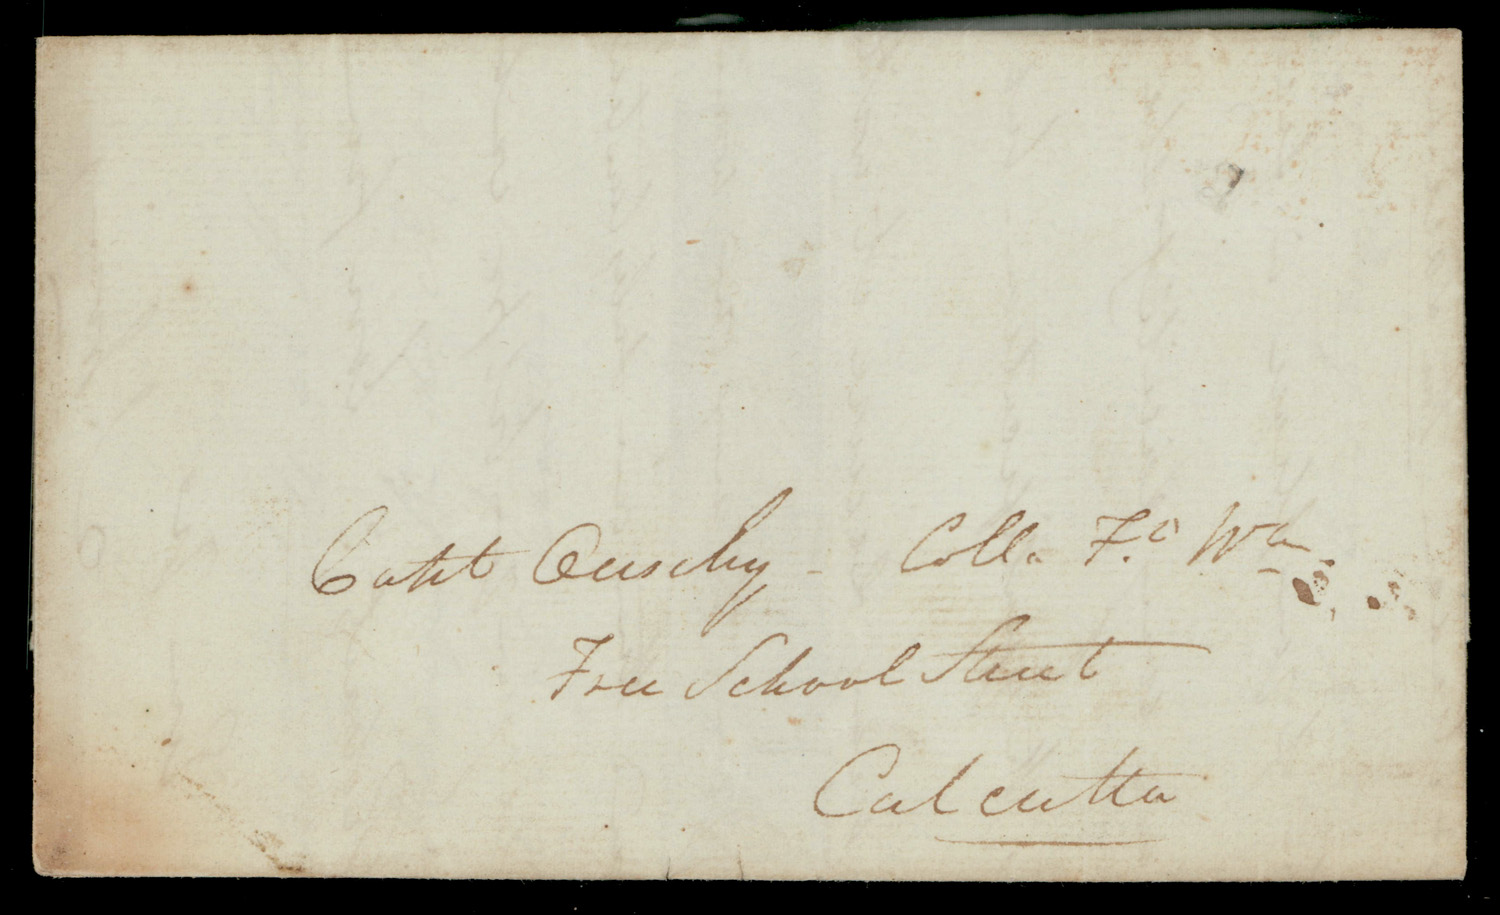 Capt Ouseley - Coll. Ft Wm
Free School Street
Calcutta